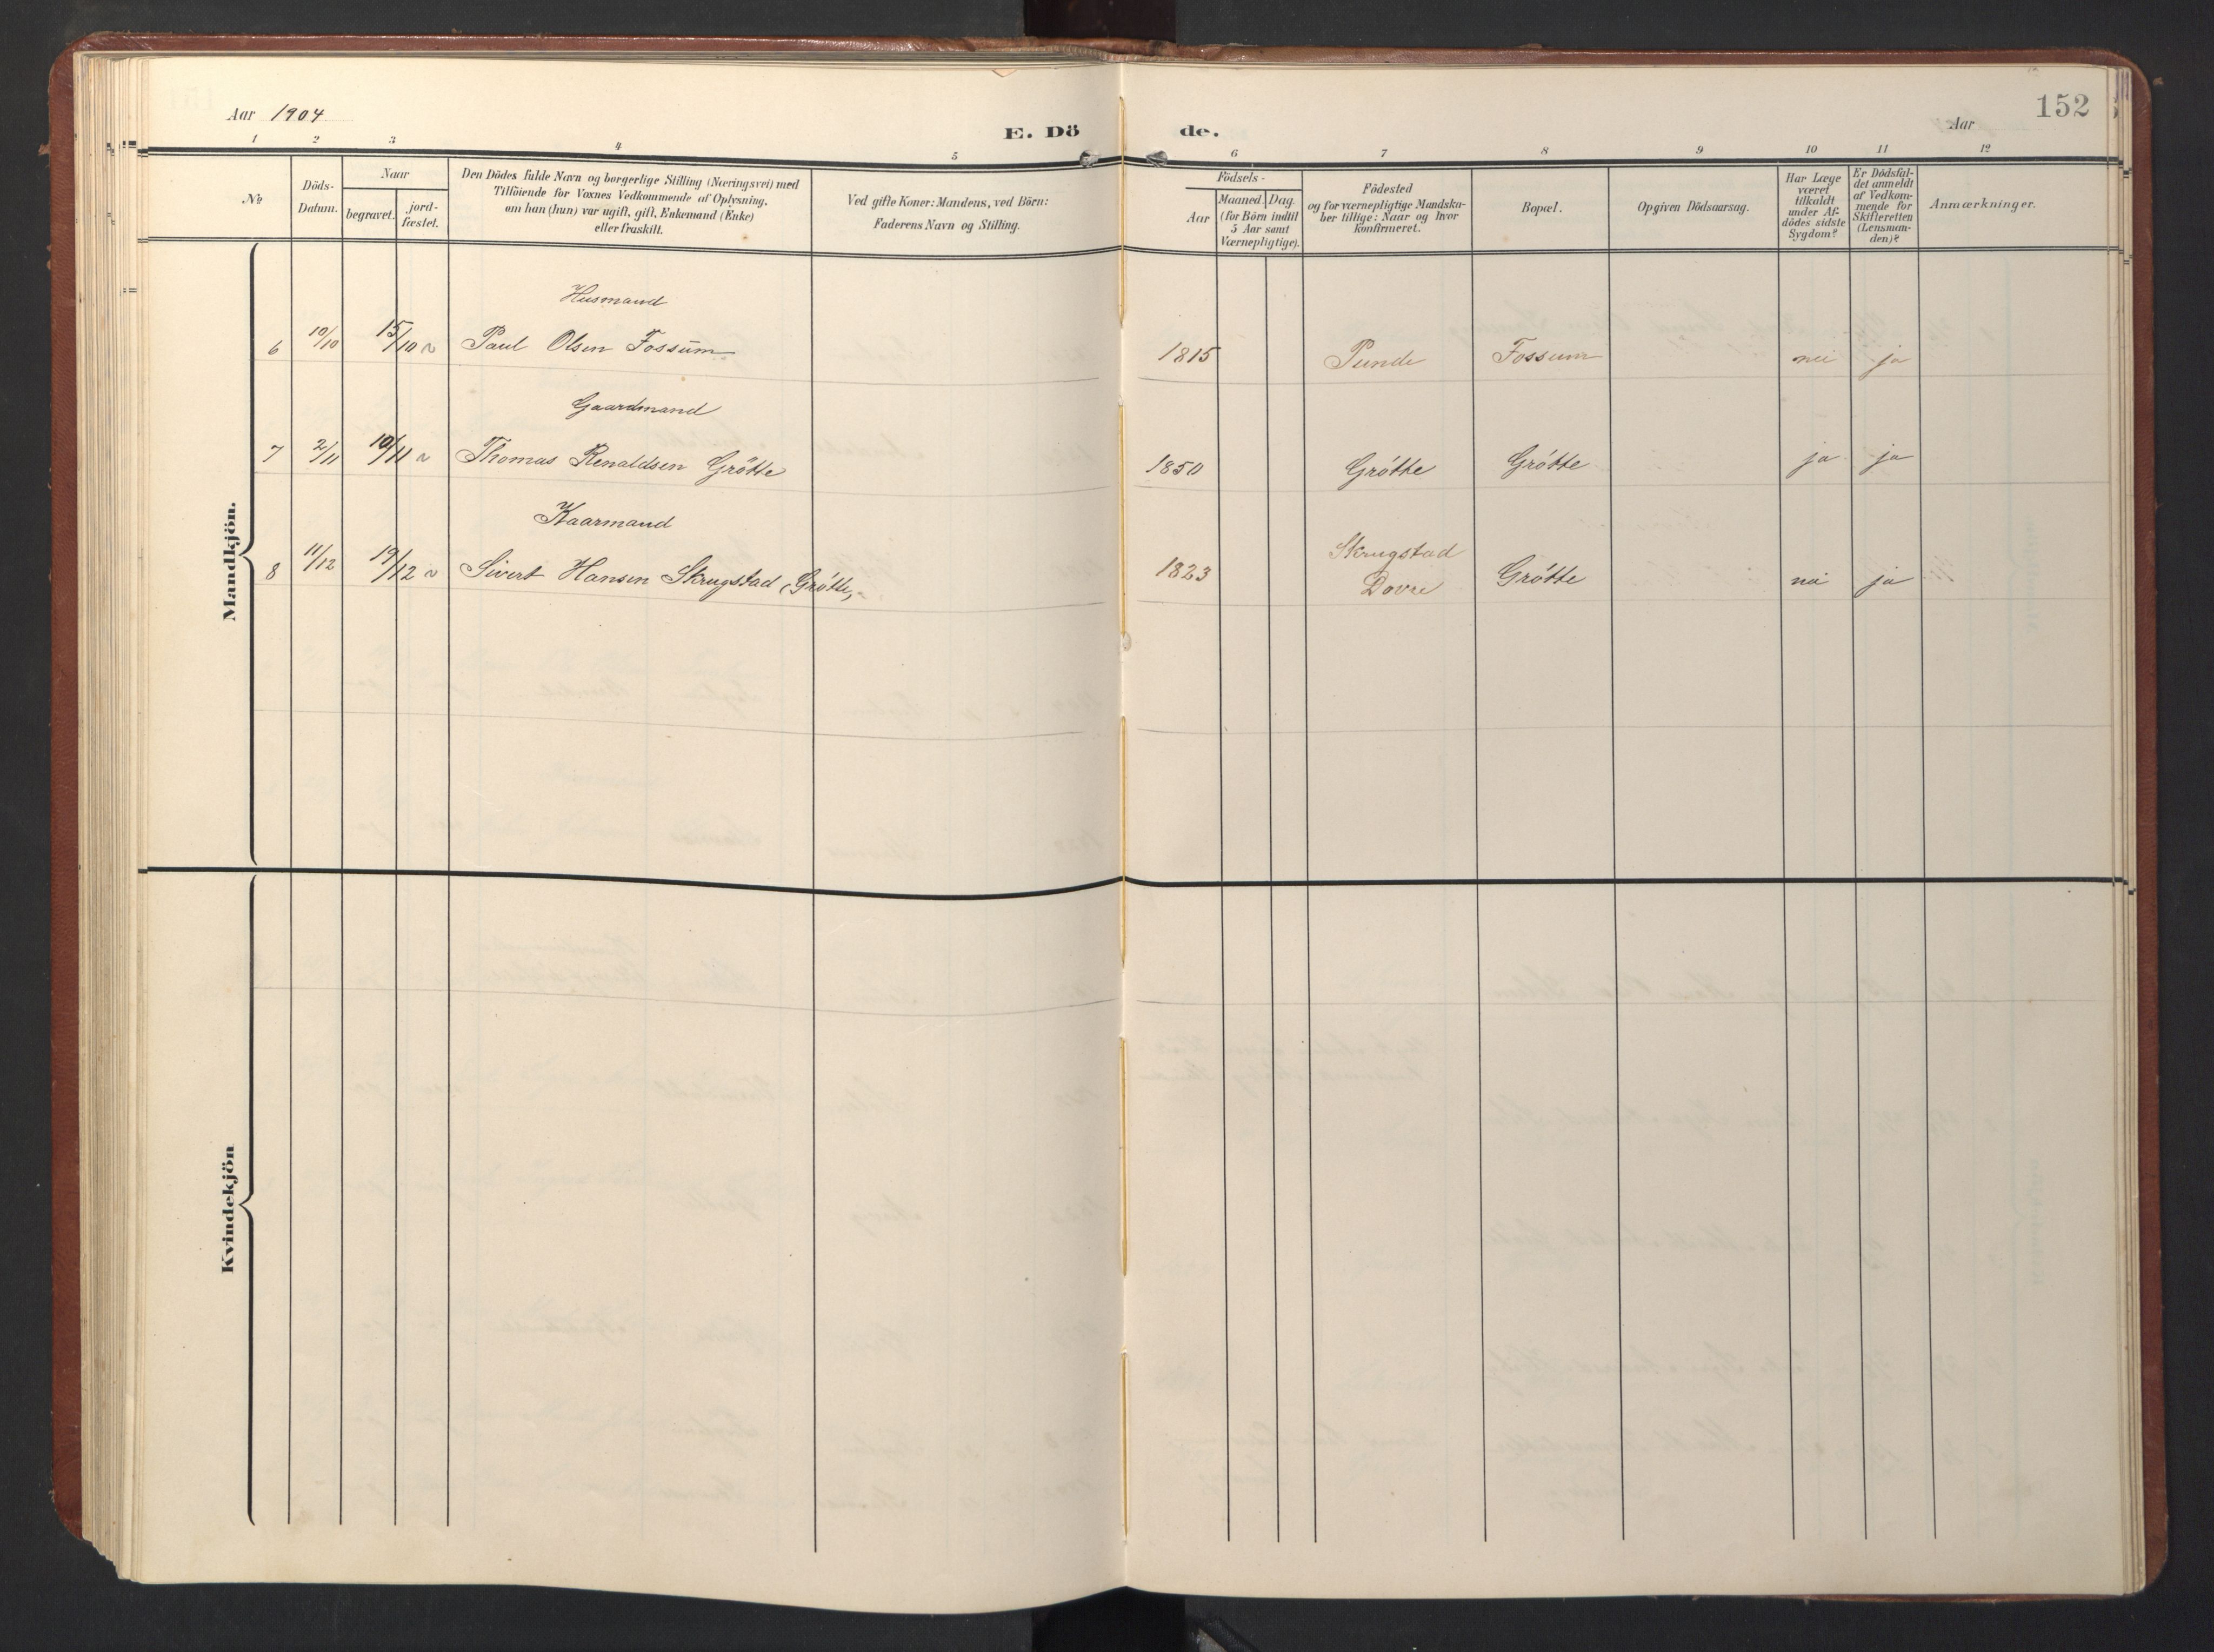 Aar 1904
E. Dö de.
Aar
152
1 2 3 4 5 6 7 8 9 10 11 12
No
Döds-
Datum.
Naar
begravet.
jord-
fæstet.
Den Dödes fulde Navn og borgerlige Stilling (Næringsvei) med
Tilföiende for Voxnes Vedkommende af Oplysning,
om han (hun) var ugift, gift, Enkemand (Enke)
eller fraskilt.
Ved gifte Koner: Mandens, ved Börn:
Faderens Navn og Stilling.
Födsels-
Aar
Maaned. Dag.
(for Börn indtil
5 Aar samt
Værnepligtige).
Födested
og for værnepligtige Mandska-
ber tillige: Naar og hvor
konfirmeret.
Bopæl.
Opgiven Dödsaarsag.
Har Læge
været
tilkaldt
under Af-
dödes sidste
Sygdom?
Er Dödsfal-
det anmeldt
af Vedkom-
mende for
Skifteretten
(Lensman-
den)?
Anmærkninger.
Mandkjön.
Husmand
6 10/10 15/10 Paul Olsen Fossum 1815 Punde Fossum nei ja
Gaardmand
7 2/11 10/11 Thomas Renaldsen Grötte 1850 Grötte Grötte ja ja
Kaarmand
8 11/12 19/12 Sivert Hansen Skrugstad (Grötte, 1823 Skrugstad
Dovre Grötte nei ja
Kvindekjön